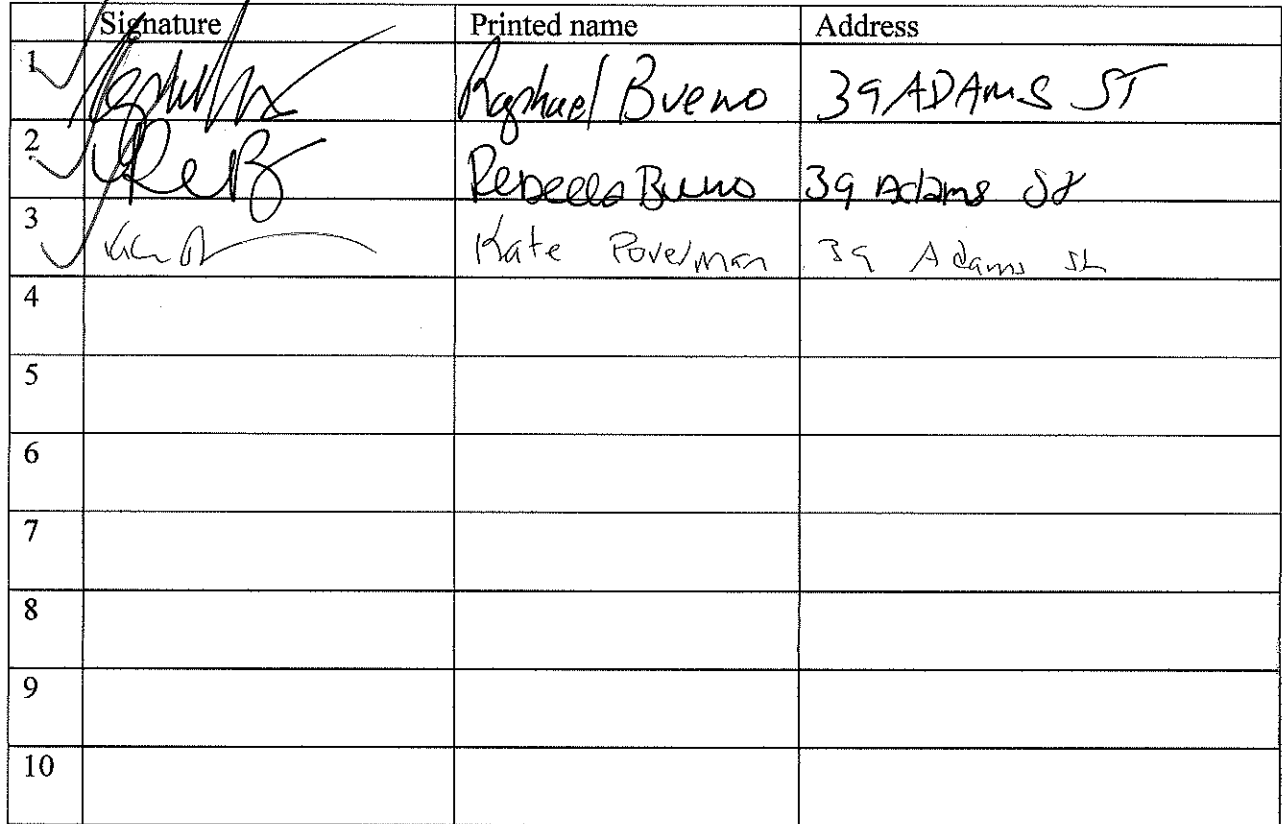 Signature Printed name Address
1 Raphael Bueno 39 ADAMS ST
2 Rebecca Bueno 39 Adams St
3 Kate Poverman 39 Adams St
4
5
6
7
8
9
10